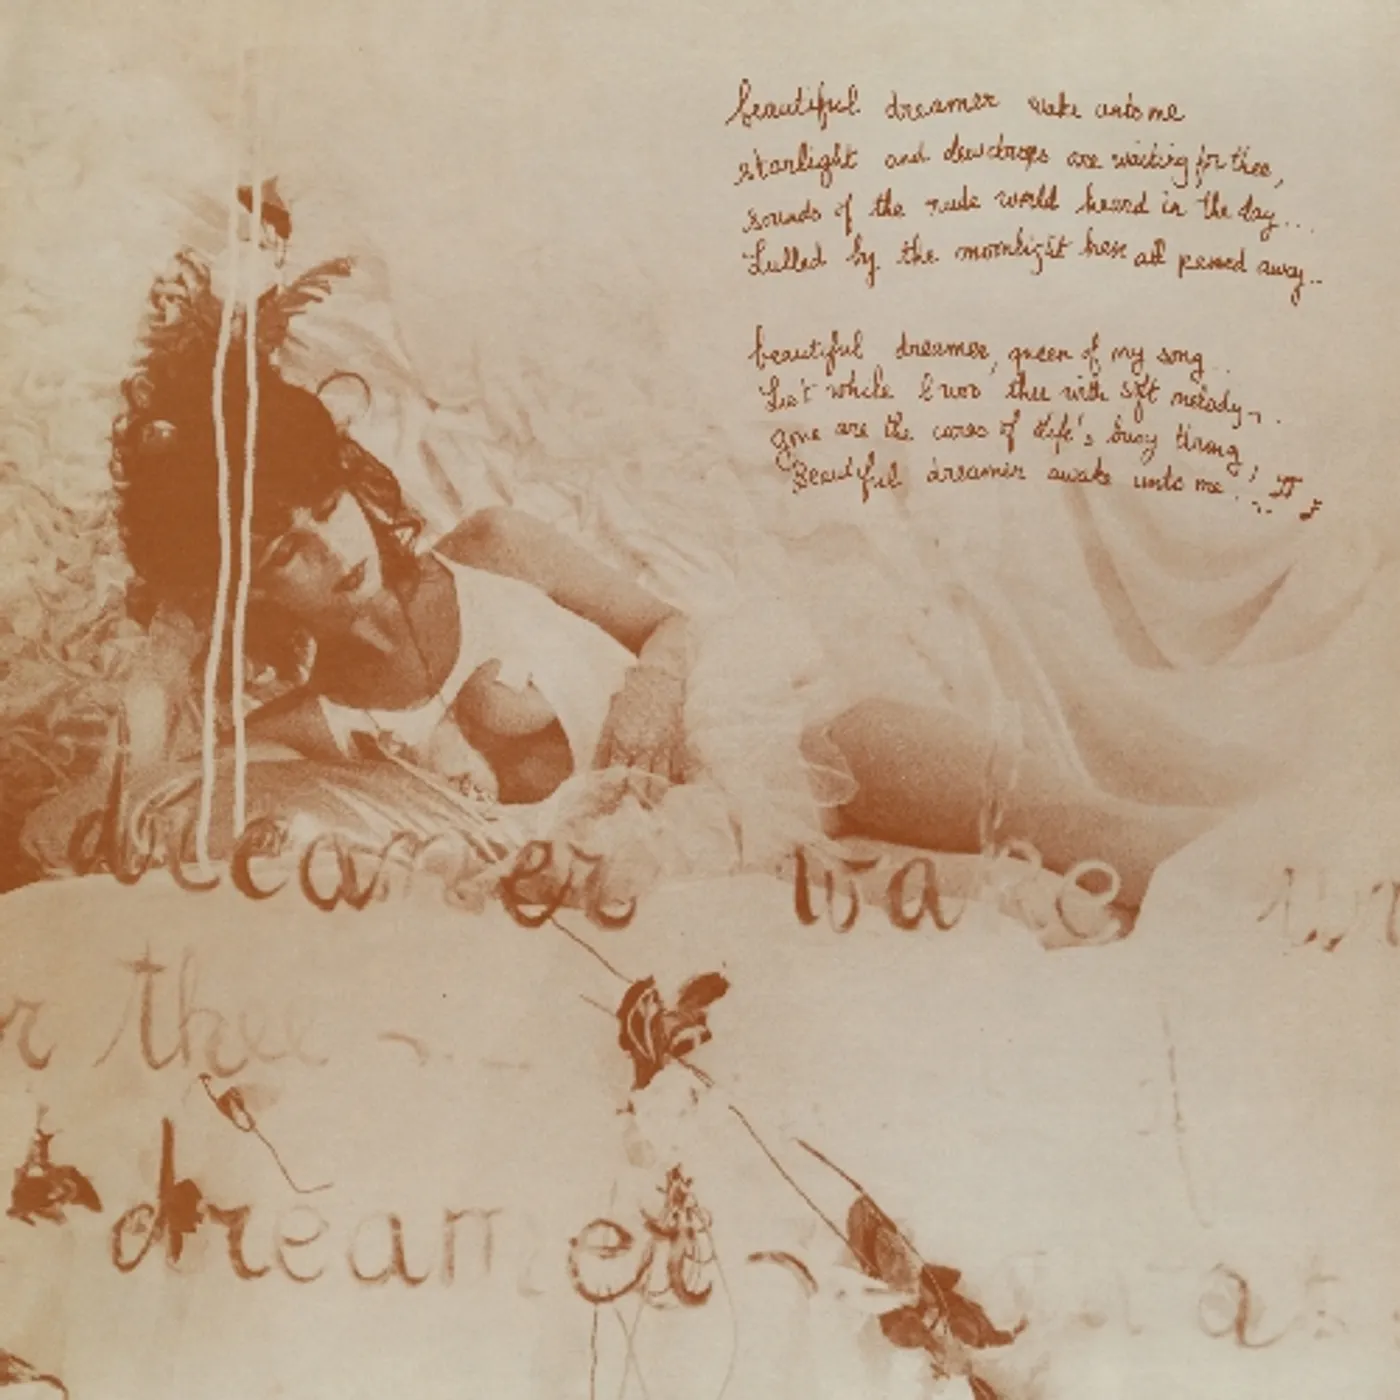 beautiful dreamer wake unto me
starlight and dewdrops are waiting for thee,
sounds of the rude world heard in the day...
Lulled by the moonlight have all passed away..
beautiful dreamer, queen of my song..
List while I woo thee with soft melody..
gone are the cares of life's busy throng,
Beautiful dreamer awake unto me...
dreamer wake un
r thee
dreamer